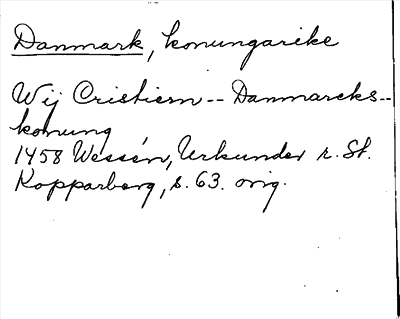 Danmark, konungarike
Wij Cristiern -- Danmarcks--
konung
1458 Wessén, Urkunder r. St.
Kopparberg, s. 63. orig.